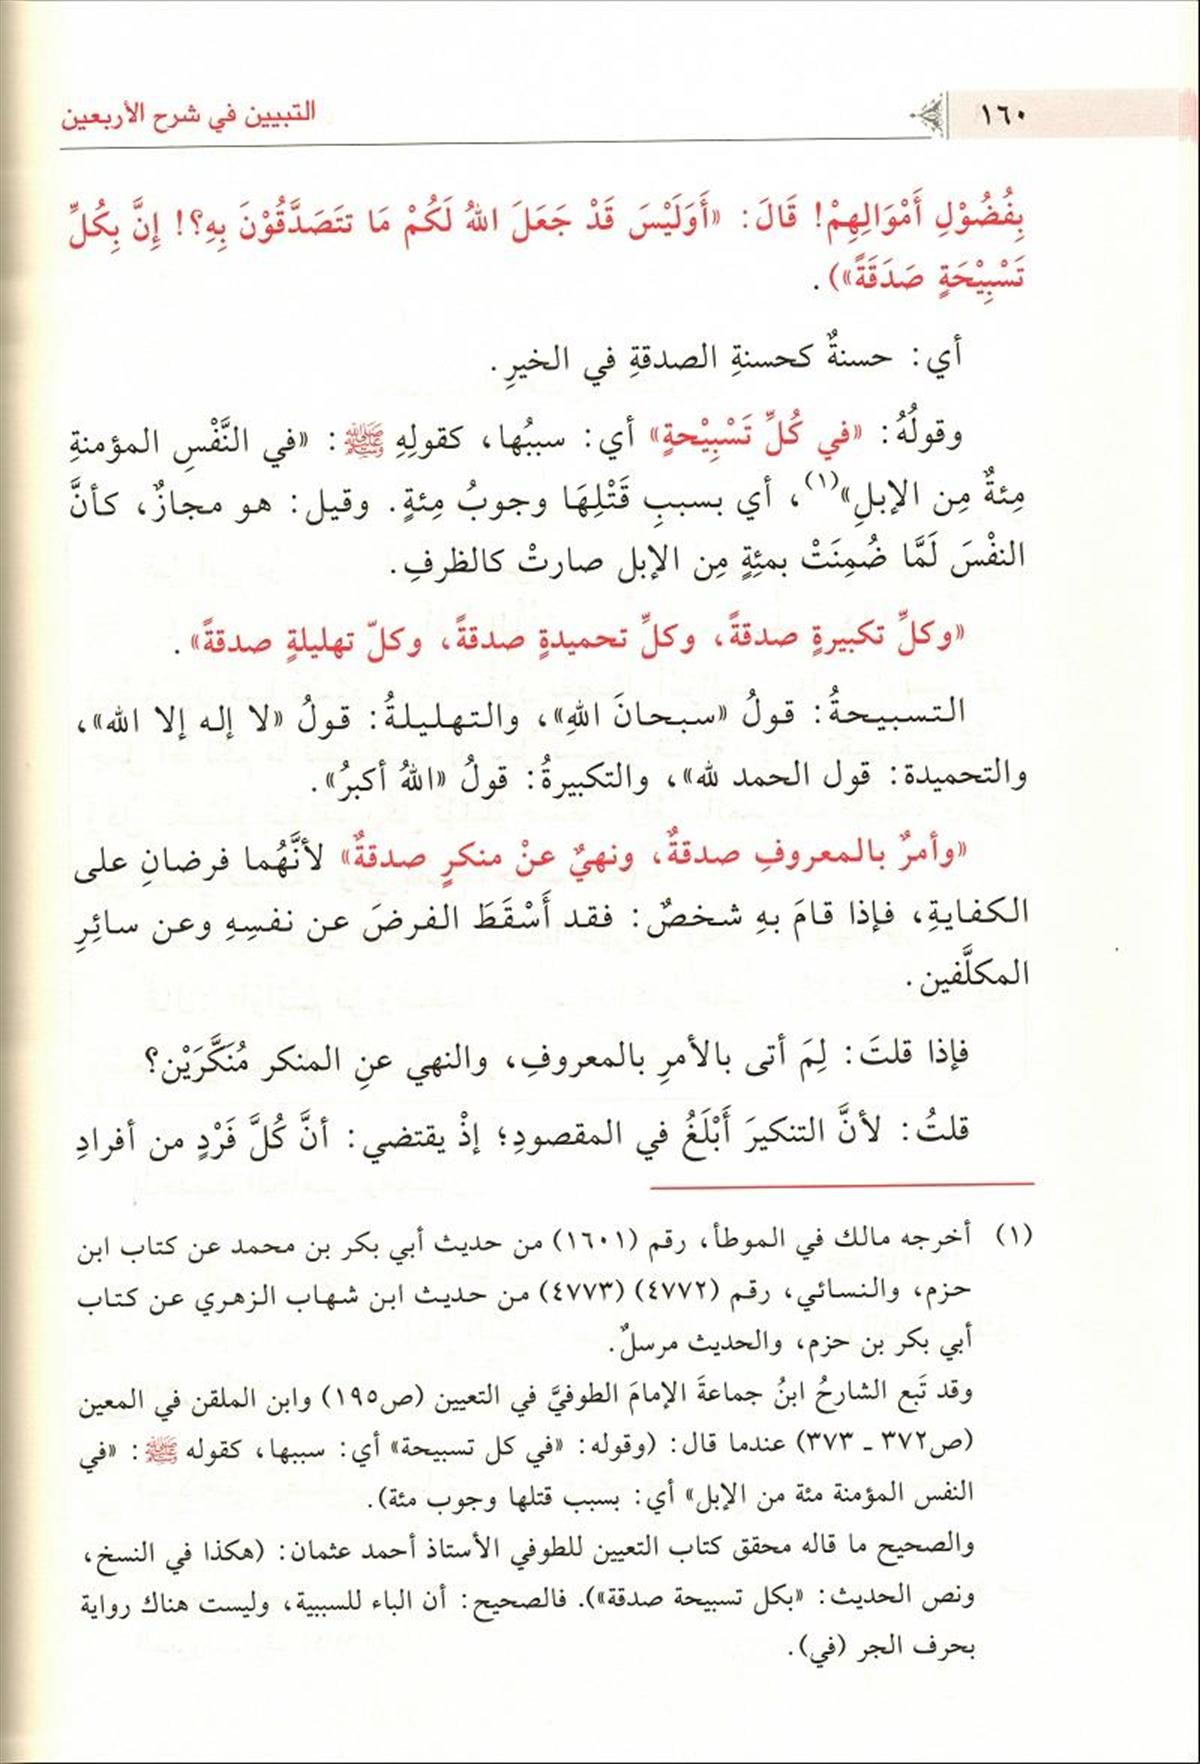 ١٦٠
التبيين في شرح الأربعين
بِفُضُوْلِ أَمْوَالِهِمْ! قَالَ: «أَوَلَيْسَ قَدْ جَعَلَ اللهُ لَكُمْ مَا تتَصَدَّقُوْنَ بِهِ؟! إِنَّ بِكُلِّ
تَسْبِيْحَةٍ صَدَقَةً»).
أي: حسنةٌ كحسنةِ الصدقةِ في الخيرِ.
وقولُهُ: «في كُلِّ تَسْبِيْحةٍ» أي: سببُها، كقولِهِ ﷺ: «في النَّفْسِ المؤمنةِ
مِئةٌ مِن الإبلِ»(١)، أي بسببِ قَتْلِهَا وجوبُ مِئةٍ. وقيل: هو مجازٌ، كأنَّ
النفْسَ لَمَّا ضُمِنَتْ بمئِةٍ مِن الإبل صارتْ كالظرفِ.
«وكلِّ تكبيرةٍ صدقةً، وكلِّ تحميدةٍ صدقةً، وكلّ تهليلةٍ صدقةً».
التسبيحةُ: قولُ «سبحانَ اللهِ»، والتهليلةُ: قولُ «لا إله إلا الله»،
والتحميدة: قول الحمد لله»، والتكبيرةُ: قولُ «اللهُ أكبرُ».
«وأمرٌ بالمعروفِ صدقةٌ، ونهيٌ عنْ منكرٍ صدقةٌ» لأنَّهُما فرضانِ على
الكفايةِ، فإذا قامَ بهِ شخصٌ: فقد أَسْقَطَ الفرضَ عن نفسِهِ وعن سائِرِ
المكلَّفين.
فإذا قلتَ: لِمَ أتى بالأمرِ بالمعروفِ، والنهي عنِ المنكر مُنَكَّرَيْن؟
قلتُ: لأنَّ التنكيرَ أَبْلَغُ في المقصودِ؛ إذْ يقتضي: أنَّ كُلَّ فَرْدٍ من أفرادِ
(١) أخرجه مالك في الموطأ، رقم (١٦٠١) من حديث أبي بكر بن محمد عن كتاب ابن
حزم، والنسائي، رقم (٤٧٧٢) (٤٧٧٣) من حديث ابن شهاب الزهري عن كتاب
أبي بكر بن حزم، والحديث مرسلٌ.
وقد تَبع الشارحُ ابنُ جماعةَ الإمامَ الطوفيَّ في التعيين (ص١٩٥) وابن الملقن في المعين
(ص٣٧٢ ـ ٣٧٣) عندما قال: (وقوله: «في كل تسبيحة» أي: سببها، كقوله ﷺ: «في
النفس المؤمنة مئة من الإبل» أي: بسبب قتلها وجوب مئة).
والصحيح ما قاله محقق كتاب التعيين للطوفي الأستاذ أحمد عثمان: (هكذا في النسخ،
ونص الحديث: «بكل تسبيحة صدقة»). فالصحيح: أن الباء للسببية، وليست هناك رواية
بحرف الجر (في).